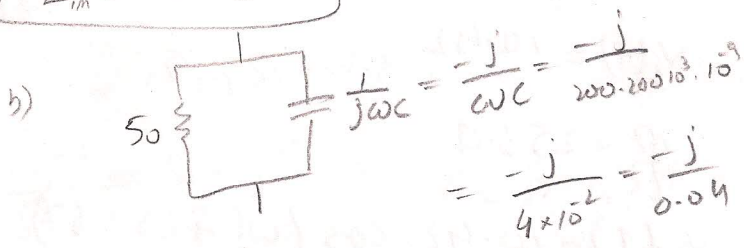 1M
b)
50
1/jωC = -j/ωC = -j/200.200 10³. 10⁻⁹
= -j/4×10⁻² = -j/0.04